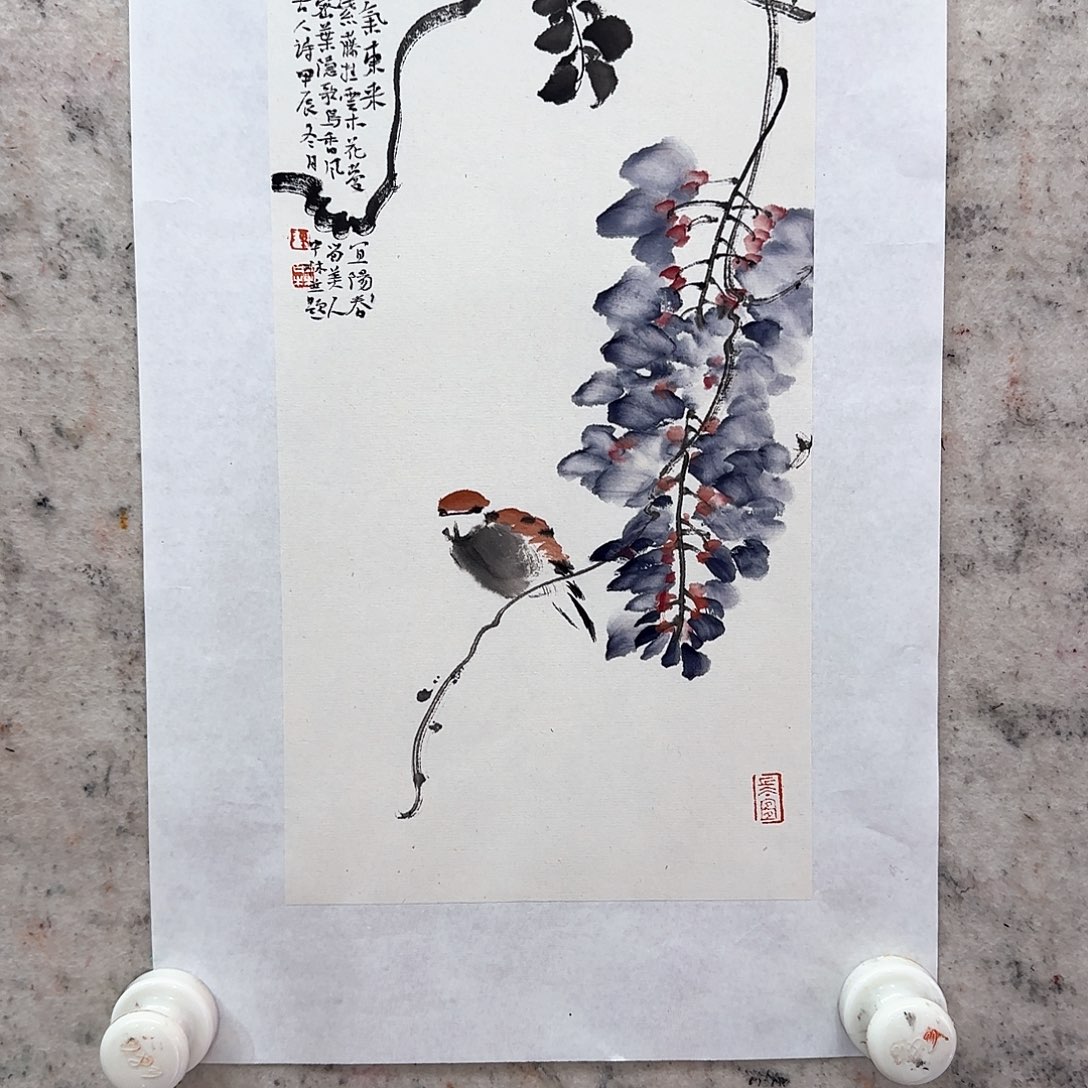 氣東来
紫藤挂雲木花蔓宜陽春
密葉隱歌鳥香風留美人
古人詩甲辰冬月中林並題